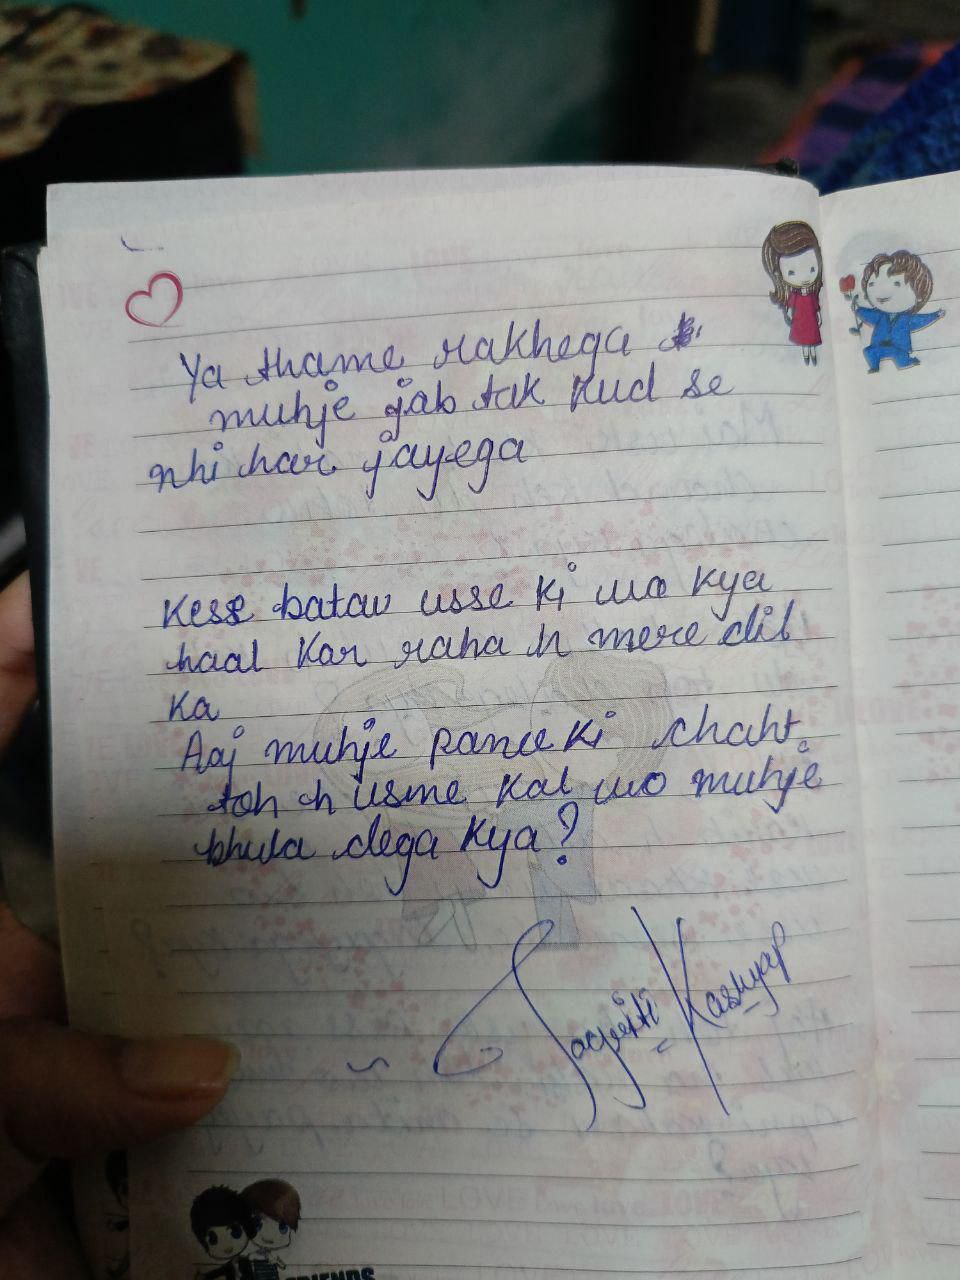 Ya thame rakhega
muhje jab tak kud se
nhi har jayega
Kese batau usse ki wo kya
haal kar raha h mere dil
ka
Aaj muhje pane ki chaht
toh h usme kal wo muhje
bhula dega kya?
~ Jagriti Kashyap
FRIENDS